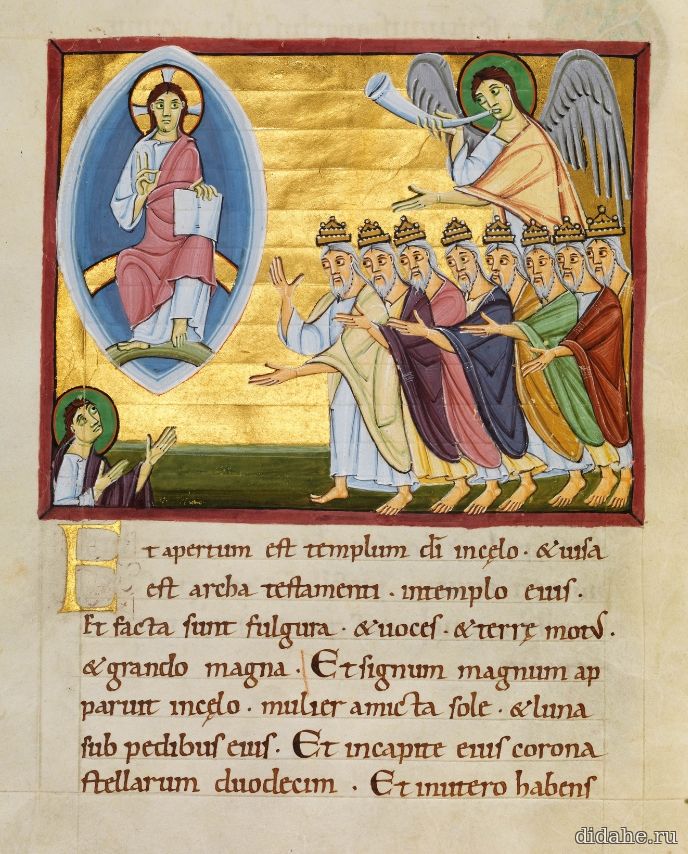 Et apertum est templum di incęlo · & uisa
est archa testamenti · intemplo eius ·
Et facta sunt fulgura · & uoces · & terrę mot᷒ ·
& grando magna · Et signum magnum ap
paruit incęlo · mulier amicta sole · & luna
sub pedibus eius · Et incapite eius corona
stellarum duodecim · Et inutero habens
didahe.ru